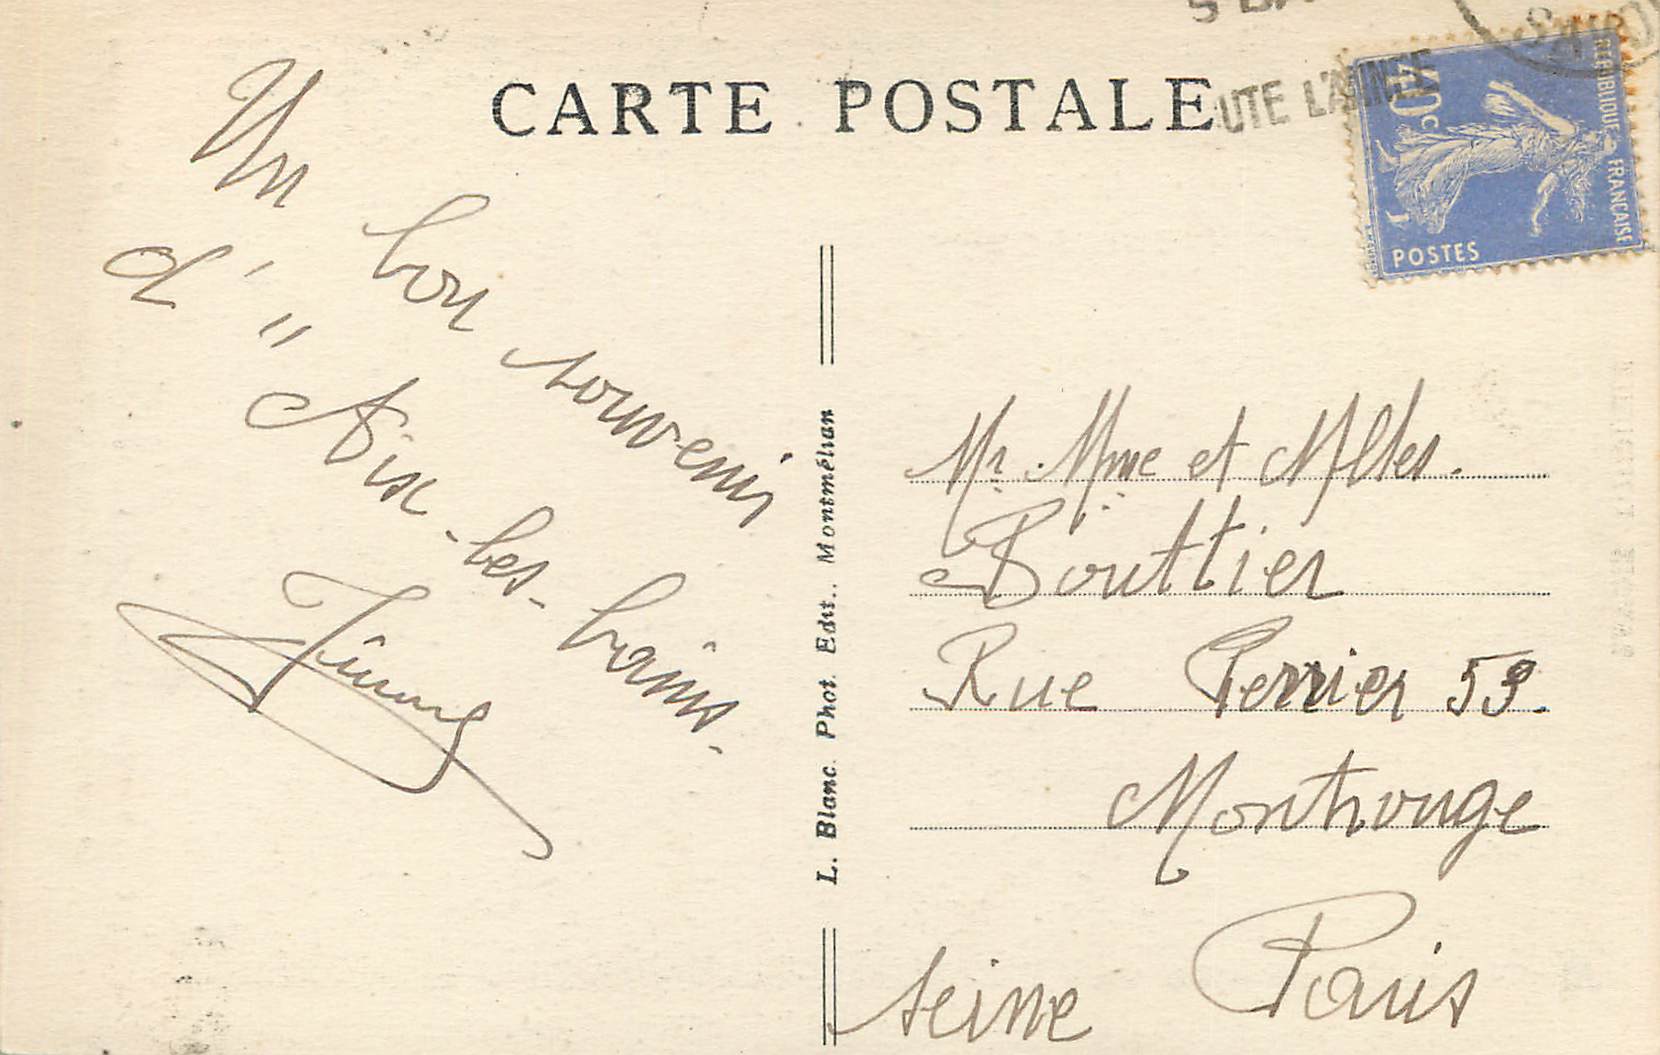 CARTE POSTALE
UTE L'ANNÉE
40c
REPUBLIQUE FRANCAISE
POSTES
Un bon souvenir
d' " Aix-les-bains.
L. Blanc. Phot. Edit.. Montmélian
Mr. Mme et Mlles.
Bouttier
Rue Perrier 59.
Montrouge
Seine Paris